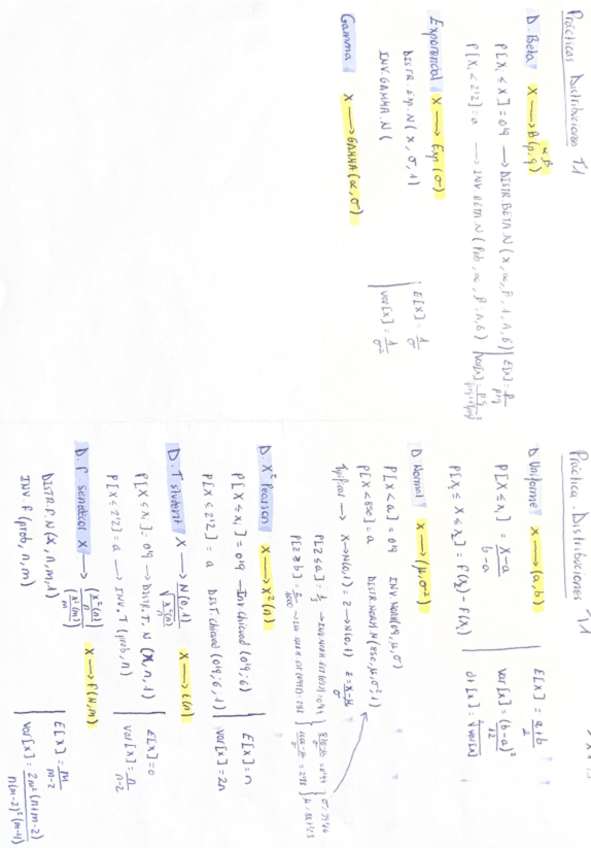 Prácticas Distribuciones T1
D. Beta X → B(p, q) α, β
P[X₁ ≤ X] = 0'9 → DISTR.BETA.N(x, α, β, 1, A, B) | E[X] =
P[X₁ < 2'2] = a → INV.BETA.N(Prob, α, β, A, B) | Var[X] =
Exponencial X → Exp(σ)
DISTR.Exp.N(x, σ, 1) | E[X] = 1/σ
INV.GAMMA.N( | Var[X] = 1/σ²
Gamma X → GAMMA(α, σ)
Práctica. Distribuciones T1
D Uniforme X → (a, b) E[X] = a+b/2
P[X ≤ x₁] = x-a/b-a Var[X] = (b-a)²/12
P[X₁ ≤ X ≤ x₂] = F(x₂) - F(x₁) dt[X] = √Var[X]
D Normal X → (μ, σ²)
P[X < a] = 0'9 INV.NORM(0'9, μ, σ)
P[X < 850] = a DISTR.NORM.N(850, μ, σ, 1)
Tipificar → X → N(0,1) = Z → N(0,1) Z = x-μ/σ
D. X² Pearson X → X²(n)
P[X ≤ x₁] = 0'9 → Inv.chicuad(0'9; 6) | E[X] = n
P[X ≤ 2'2] = a Dist.chicuad(0'9; 6; 1) | Var[X] = 2n
D. T student X → N(0,1)/√X²(n)/n X → t(n)
P[X ≤ x₁] = 0'9 → DISTR.T.N(x, n, 1) | E[X] = 0
P[X ≤ 2'2] = a → INV.T(prob, n) | Var[X] = n/n-2
D. F. Snedecor X → (X²(n)/n)/(X²(m)/m) X → F(n, m)
DISTR.F.N(x, n, m, 1) | E[X] = m/m-2
INV.F(prob, n, m) | Var[X] = 2m²(n+m-2)/n(m-2)²(m-4)